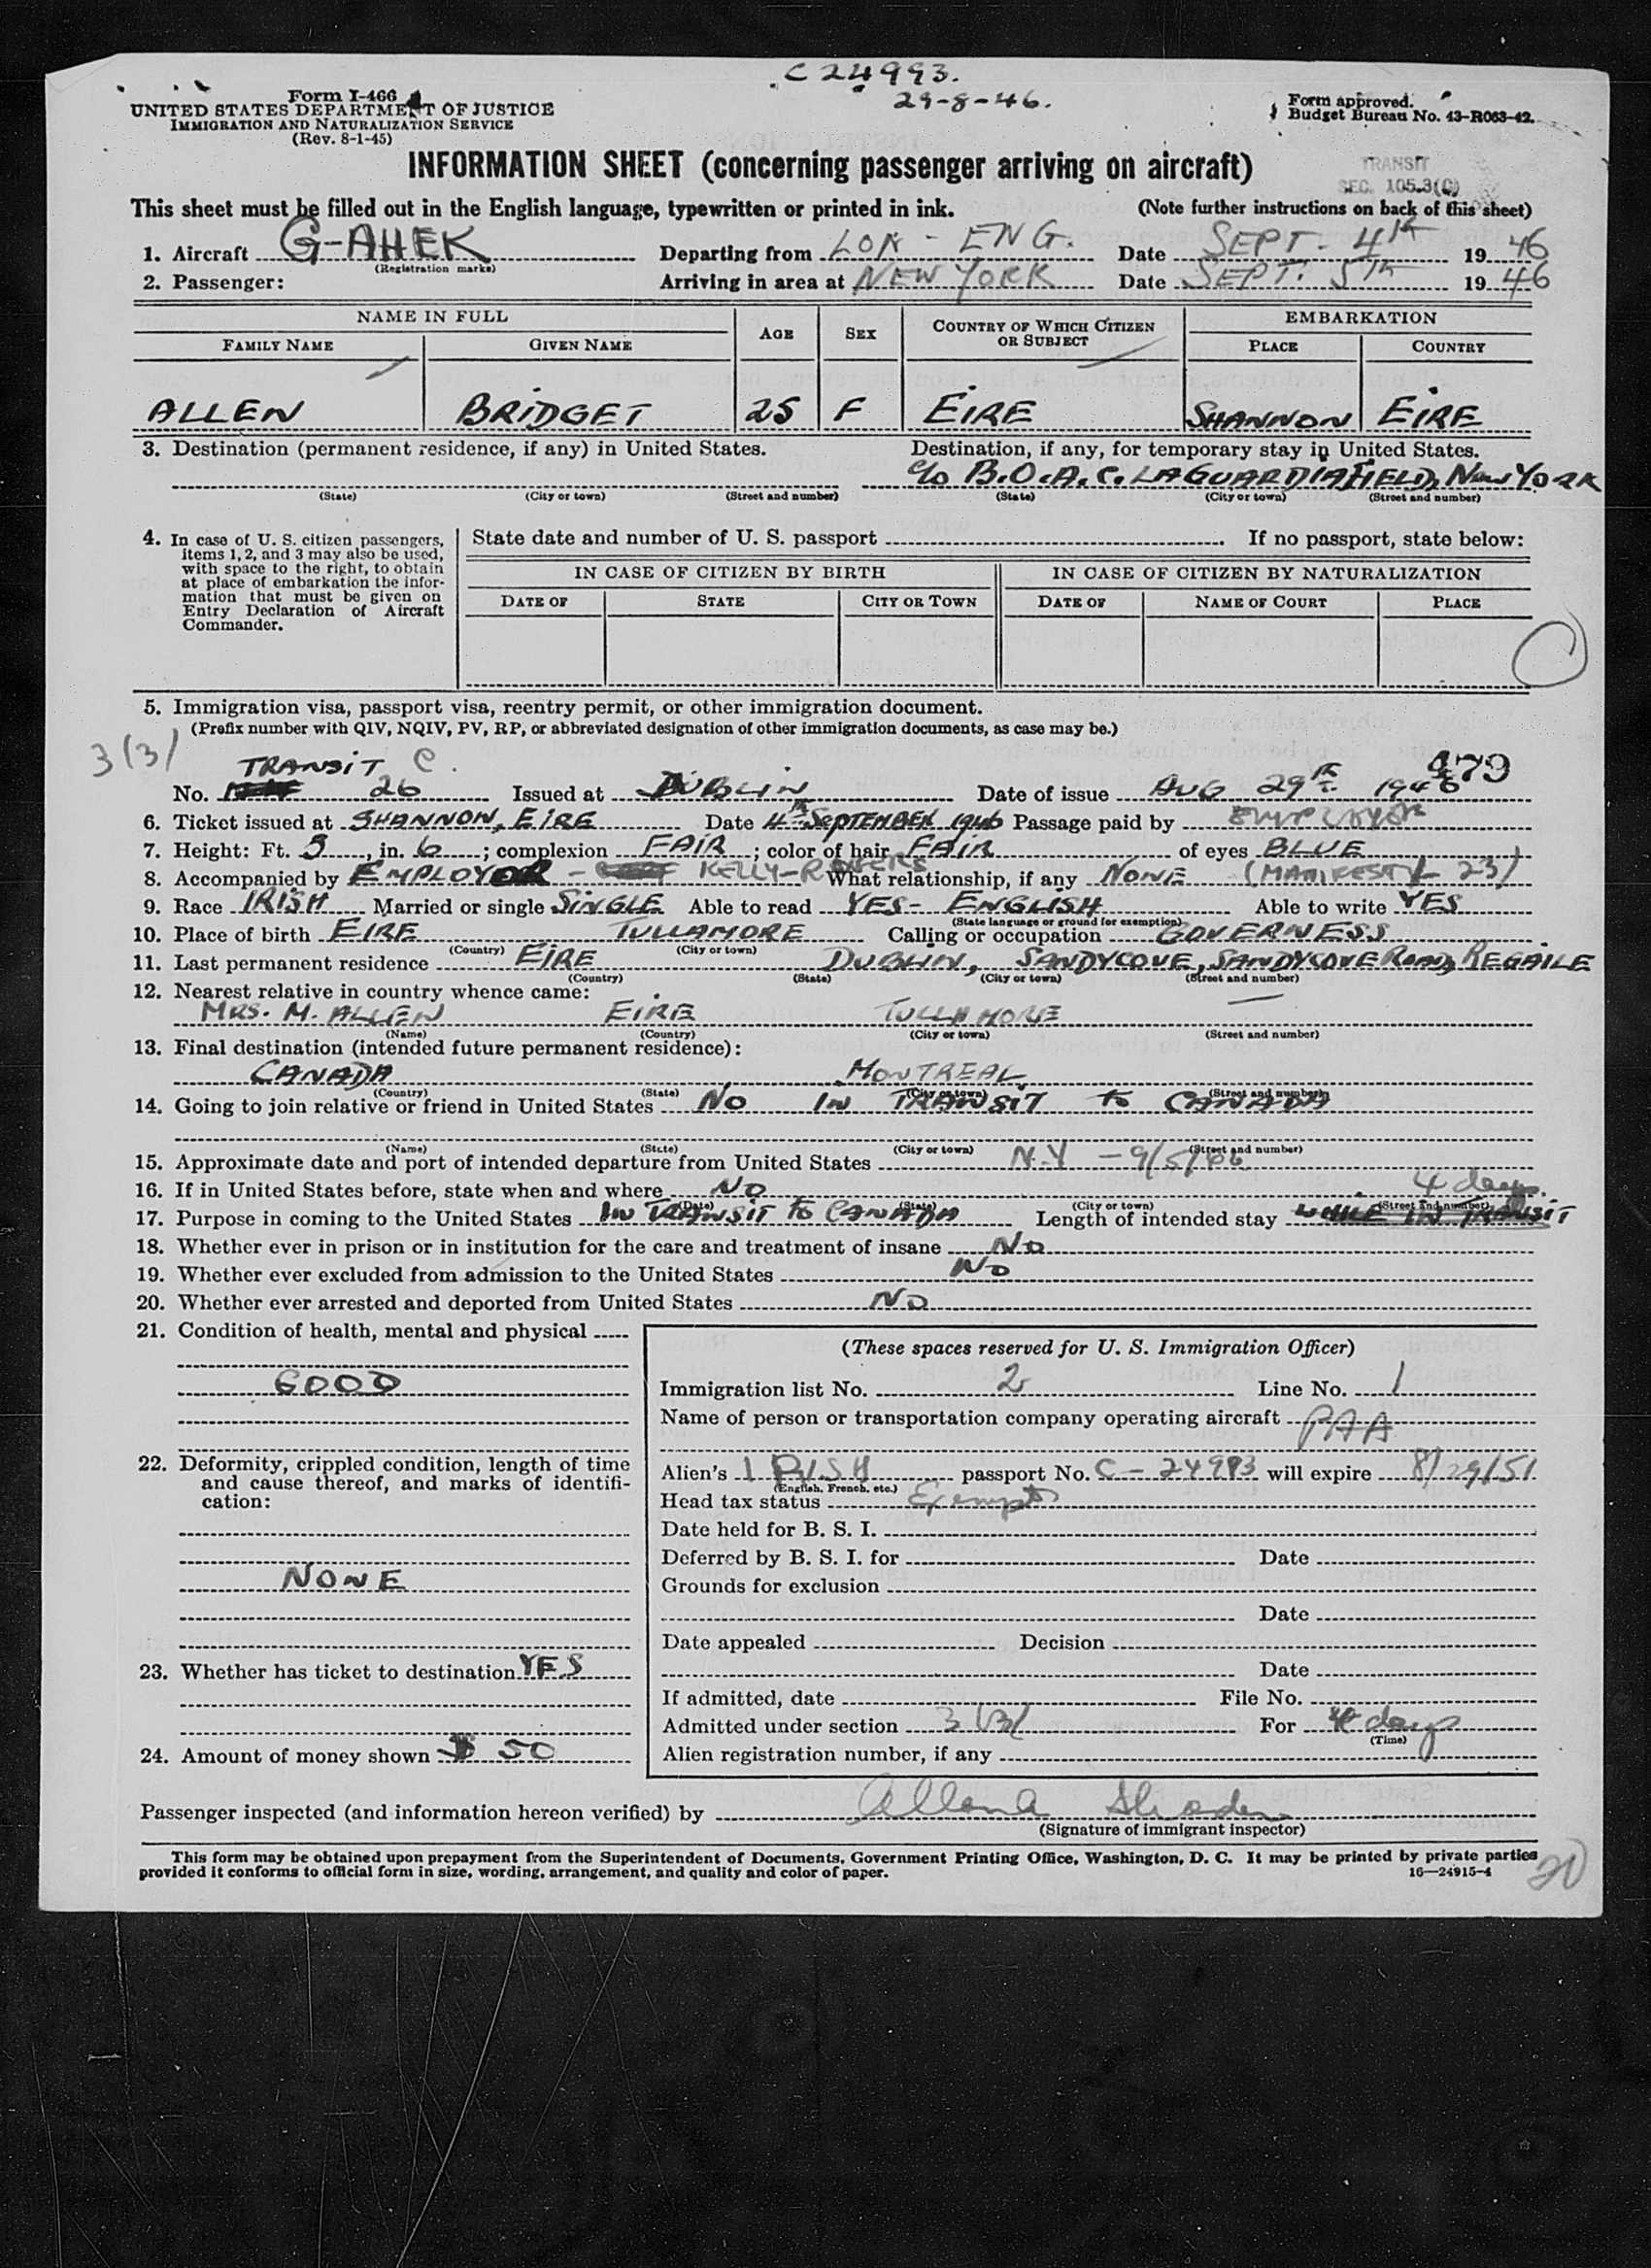 C 24993.
29-8-46.
Form I-466
UNITED STATES DEPARTMENT OF JUSTICE
IMMIGRATION AND NATURALIZATION SERVICE
(Rev. 8-1-45)
Form approved.
Budget Bureau No. 43-R063-42.
INFORMATION SHEET (concerning passenger arriving on aircraft)
TRANSIT
SEC. 105.3(C)
This sheet must be filled out in the English language, typewritten or printed in ink. (Note further instructions on back of this sheet)
1. Aircraft G-AHEK Departing from LON - ENG. Date SEPT. 4th 1946
(Registration marks)
2. Passenger: Arriving in area at NEW YORK Date SEPT. 5th 1946
NAME IN FULL AGE SEX COUNTRY OF WHICH CITIZEN OR SUBJECT EMBARKATION
FAMILY NAME GIVEN NAME PLACE COUNTRY
ALLEN BRIDGET 25 F EIRE SHANNON EIRE
3. Destination (permanent residence, if any) in United States. Destination, if any, for temporary stay in United States.
c/o B.O.A.C. LAGUARDIA FIELD, NEW YORK
(State) (City or town) (Street and number) (State) (City or town) (Street and number)
4. In case of U. S. citizen passengers, items 1, 2, and 3 may also be used, with space to the right, to obtain at place of embarkation the information that must be given on Entry Declaration of Aircraft Commander.
State date and number of U. S. passport . If no passport, state below:
IN CASE OF CITIZEN BY BIRTH IN CASE OF CITIZEN BY NATURALIZATION
DATE OF STATE CITY OR TOWN DATE OF NAME OF COURT PLACE
5. Immigration visa, passport visa, reentry permit, or other immigration document.
(Prefix number with QIV, NQIV, PV, RP, or abbreviated designation of other immigration documents, as case may be.)
3(3)
TRANSIT C. 479
No. 26 Issued at DUBLIN Date of issue AUG 29th 1946
6. Ticket issued at SHANNON, EIRE Date 4th SEPTEMBER 1946 Passage paid by EMPLOYER
7. Height: Ft. 5, in. 6; complexion FAIR; color of hair FAIR of eyes BLUE
8. Accompanied by EMPLOYER - KELLY-ROGERS What relationship, if any NONE (MANIFEST 1- 23)
9. Race IRISH Married or single SINGLE Able to read YES - ENGLISH Able to write YES
(State language or ground for exemption)
10. Place of birth EIRE TULLAMORE Calling or occupation GOVERNESS
(Country) (City or town)
11. Last permanent residence EIRE DUBLIN, SANDYCOVE, SANDYCOVE ROAD, REGAILE
(Country) (State) (City or town) (Street and number)
12. Nearest relative in country whence came:
MRS. M. ALLEN EIRE TULLAMORE —
(Name) (Country) (City or town) (Street and number)
13. Final destination (intended future permanent residence):
CANADA MONTREAL
(Country) (State) (City or town) (Street and number)
14. Going to join relative or friend in United States NO IN TRANSIT TO CANADA
(Name) (State) (City or town) (Street and number)
15. Approximate date and port of intended departure from United States N.Y - 9/5/46
16. If in United States before, state when and where NO
(Date) (State) (City or town) (Street and number)
4 days.
17. Purpose in coming to the United States IN TRANSIT TO CANADA Length of intended stay WHILE IN TRANSIT
18. Whether ever in prison or in institution for the care and treatment of insane NO
19. Whether ever excluded from admission to the United States NO
20. Whether ever arrested and deported from United States NO
21. Condition of health, mental and physical
GOOD
22. Deformity, crippled condition, length of time and cause thereof, and marks of identification:
NONE
23. Whether has ticket to destination YES
24. Amount of money shown $ 50
(These spaces reserved for U. S. Immigration Officer)
Immigration list No. 2 Line No. 1
Name of person or transportation company operating aircraft PAA
Alien's IRISH passport No. C - 24993 will expire 8/29/51
(English, French, etc.)
Head tax status Exempt
Date held for B. S. I.
Deferred by B. S. I. for Date
Grounds for exclusion
Date
Date appealed Decision
Date
If admitted, date File No.
Admitted under section 3(3) For 4 days
(Time)
Alien registration number, if any
Passenger inspected (and information hereon verified) by
(Signature of immigrant inspector)
This form may be obtained upon prepayment from the Superintendent of Documents, Government Printing Office, Washington, D. C. It may be printed by private parties
provided it conforms to official form in size, wording, arrangement, and quality and color of paper. 16—24915-4
20